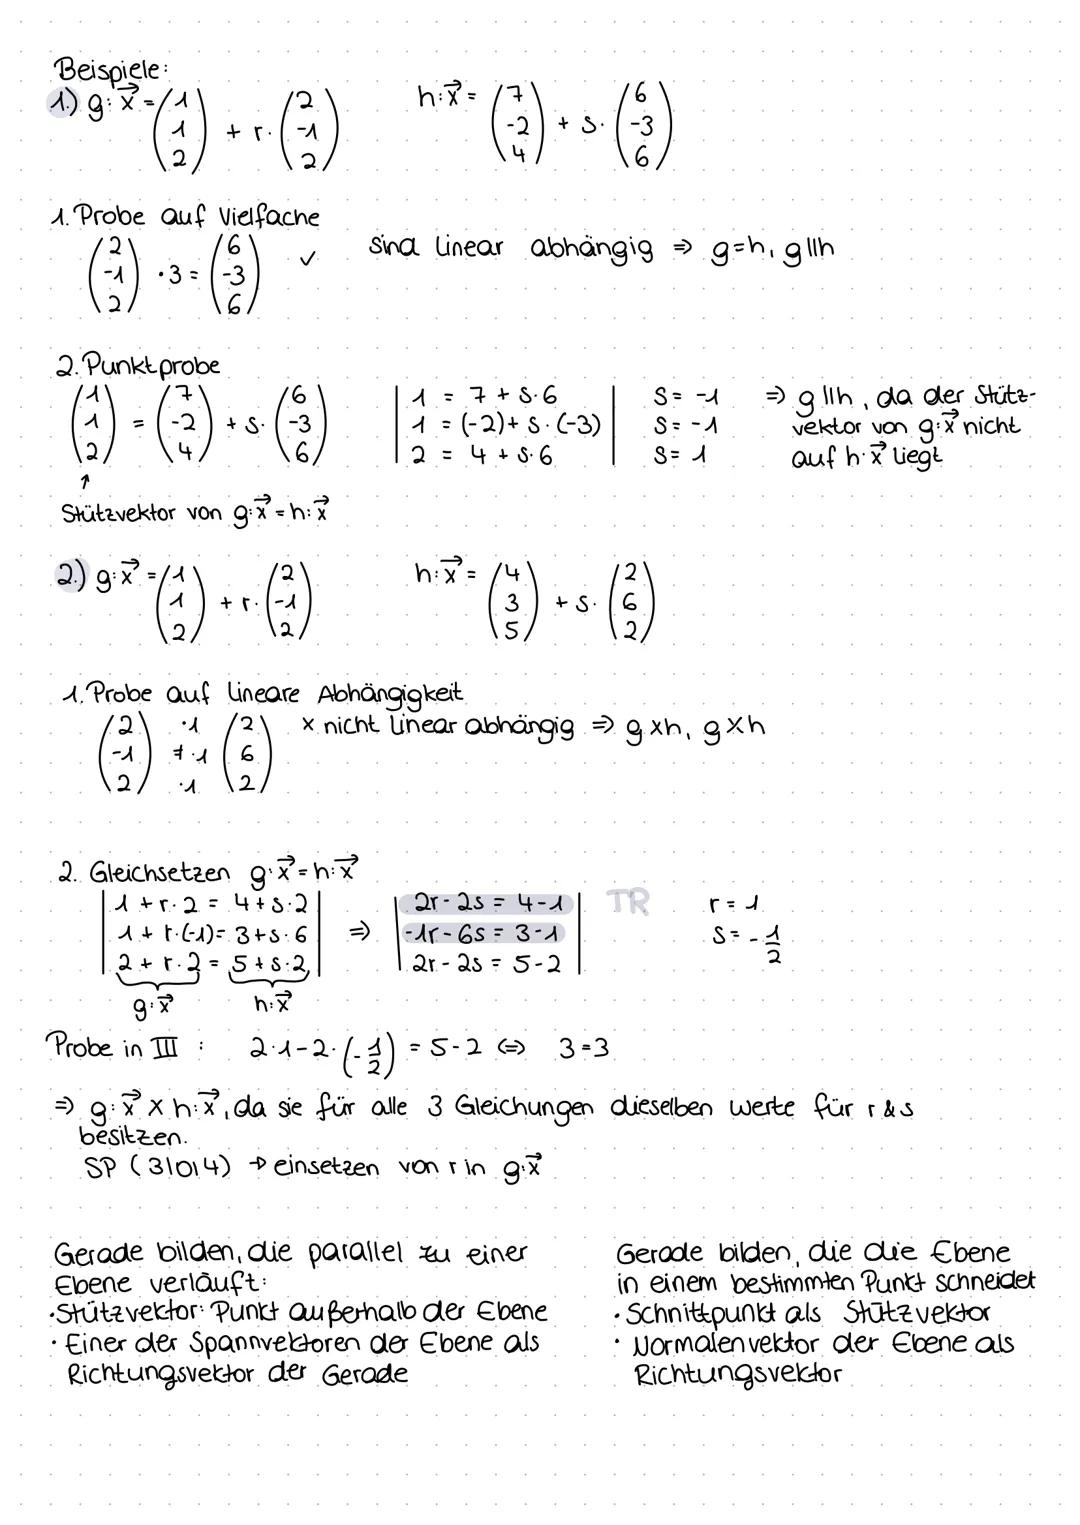 Beispiele:
1.) g: x⃗ = (1 1 2) + r · (2 -1 2) h: x⃗ = (7 -2 4) + s · (6 -3 6)
1. Probe auf Vielfache
(2 -1 2) · 3 = (6 -3 6) ✓ sind linear abhängig ⇒ g=h, g||h
2. Punktprobe
(1 1 2) = (7 -2 4) + s · (6 -3 6)
1 = 7 + s·6 s = -1
1 = (-2) + s·(-3) s = -1
2 = 4 + s·6 s = 1
⇒ g||h, da der Stütz-
vektor von g: x⃗ nicht
auf h: x⃗ liegt
↑
Stützvektor von g: x⃗ = h: x⃗
2.) g: x⃗ = (1 1 2) + r · (2 -1 2) h: x⃗ = (4 3 5) + s · (2 6 2)
1. Probe auf lineare Abhängigkeit
(2 -1 2) ·1 ≠ ·1 ·1 (2 6 2) x nicht linear abhängig ⇒ g x h, g x h
2. Gleichsetzen g: x⃗ = h: x⃗
1 + r·2 = 4 + s·2 2r - 2s = 4-1 TR r = 1
1 + r·(-1) = 3 + s·6 ⇒ -1r - 6s = 3-1 s = -1/2
2 + r·2 = 5 + s·2 2r - 2s = 5-2
g: x⃗ h: x⃗
Probe in III : 2·1-2·(-1/2) = 5-2 ⇔ 3=3
⇒ g: x⃗ x h: x⃗, da sie für alle 3 Gleichungen dieselben Werte für r & s
besitzen.
SP (3|0|4) → einsetzen von r in g: x⃗
Gerade bilden, die parallel zu einer
Ebene verläuft:
· Stützvektor: Punkt außerhalb der Ebene
· Einer der Spannvektoren der Ebene als
Richtungsvektor der Gerade
Gerade bilden, die die Ebene
in einem bestimmten Punkt schneidet
· Schnittpunkt als Stützvektor
· Normalenvektor der Ebene als
Richtungsvektor